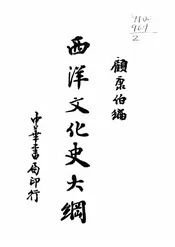 顧康伯編
西洋文化史大綱
中華書局印行